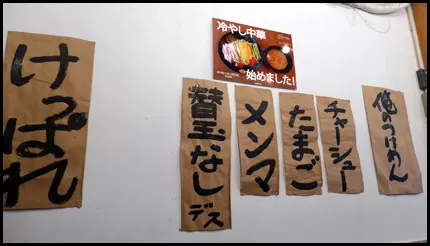 冷やし中華
始めました!
俺のつけめん
チャーシュー
たまご
メンマ
替玉なしデス
けっぱれ